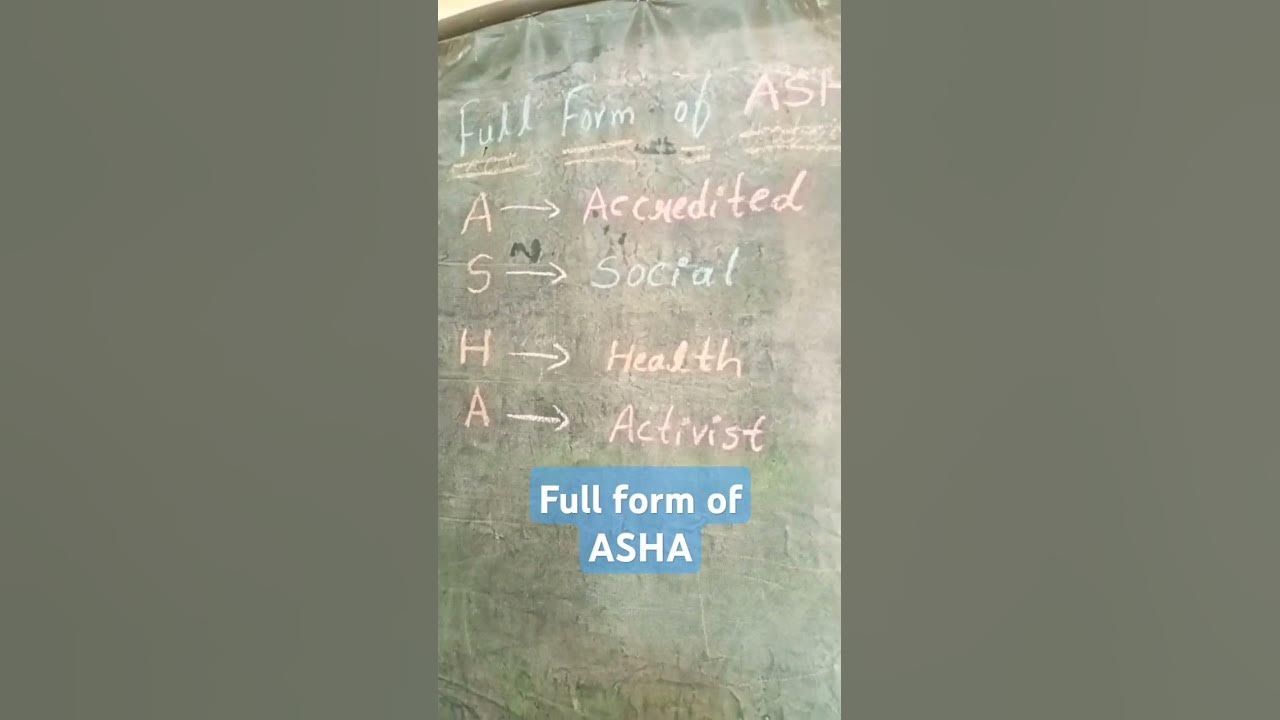 Full Form of ASH
A → Accredited
S → Social
H → Health
A → Activist
Full form of
ASHA